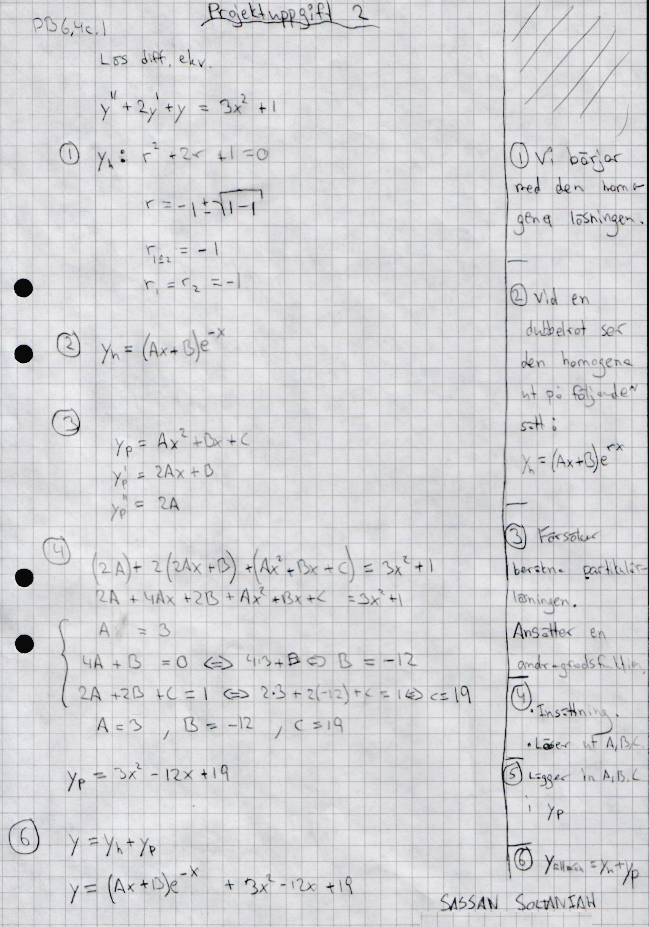 Projektuppgift 2
PB6,4c.1
Lös diff. ekv.
y'' + 2y' + y = 3x² + 1
① yₕ: r² + 2r + 1 = 0
r = -1 ± √1-1
r₁,₂ = -1
r₁ = r₂ = -1
② yₕ = (Ax + B)e⁻ˣ
③
yₚ = Ax² + Bx + C
yₚ' = 2Ax + B
yₚ'' = 2A
④
(2A) + 2(2Ax + B) + (Ax² + Bx + C) = 3x² + 1
2A + 4Ax + 2B + Ax² + Bx + C = 3x² + 1
A = 3
4A + B = 0 ⇔ 4·3 + B ⇔ B = -12
2A + 2B + C = 1 ⇔ 2·3 + 2(-12) + C = 1 ⇔ C = 19
A = 3 , B = -12 , C = 19
yₚ = 3x² - 12x + 19
⑥ y = yₕ + yₚ
y = (Ax + B)e⁻ˣ + 3x² - 12x + 19
① Vi börjar
med den homo-
gena lösningen.
② Vid en
dubbelrot ser
den homogena
ut på följande
sätt:
yₕ = (Ax + B)eʳˣ
③ Försöker
beräkna partikulär-
lösningen.
Ansätter en
andragradsfunktion.
④
• Insättning.
• Löser ut A, B, C.
⑤ Lägger in A, B, C
i yₚ
⑥ yallmän = yₕ + yₚ
SASSAN SOLTANIAH